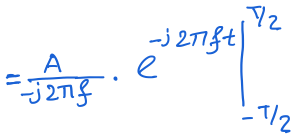 = A/(-j2πf) · e^(-j2πft) |_(-T/2)^(T/2)